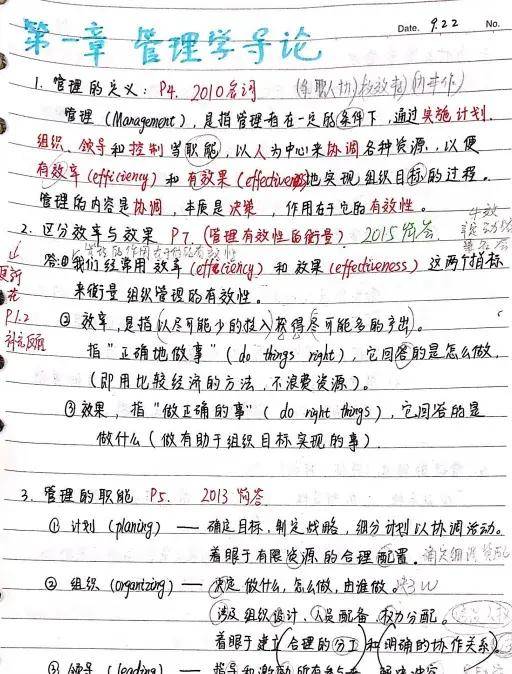 Date. 9.22 No.
第一章 管理学导论
1. 管理的定义: P4. 2010名词
管理 (Management), 是指管理者在一定的条件下, 通过实施计划.
组织、领导和控制等职能, 以人为中心来协调各种资源, 以便
有效率 (efficiency) 和有效果 (effectiveness)地实现组织目标的过程。
管理的内容是协调, 本质是决策, 作用在于它的有效性。
2. 区分效率与效果 P7. (管理有效性的衡量) 2015简答
答:①我们经常用效率 (efficiency) 和效果 (effectiveness) 这两个指标
来衡量组织管理的有效性。
P1.2
② 效率, 是指以尽可能少的投入获得尽可能多的产出。
指“正确地做事” (do things right), 它回答的是怎么做,
(即用比较经济的方法, 不浪费资源)。
③ 效果, 指“做正确的事” (do right things), 它回答的是
做什么 (做有助于组织目标实现的事)
3. 管理的职能 P5. 2013简答
① 计划 (planing) — 确定目标, 制定战略, 细分计划以协调活动。
着眼于有限资源的合理配置。
② 组织 (organizing) — 决定做什么, 怎么做, 由谁做。
涉及组织设计、人员配备、权力分配。
着眼于建立合理的分工和明确的协作关系。
③ 领导 (leading) — 指导和激励所有参与者